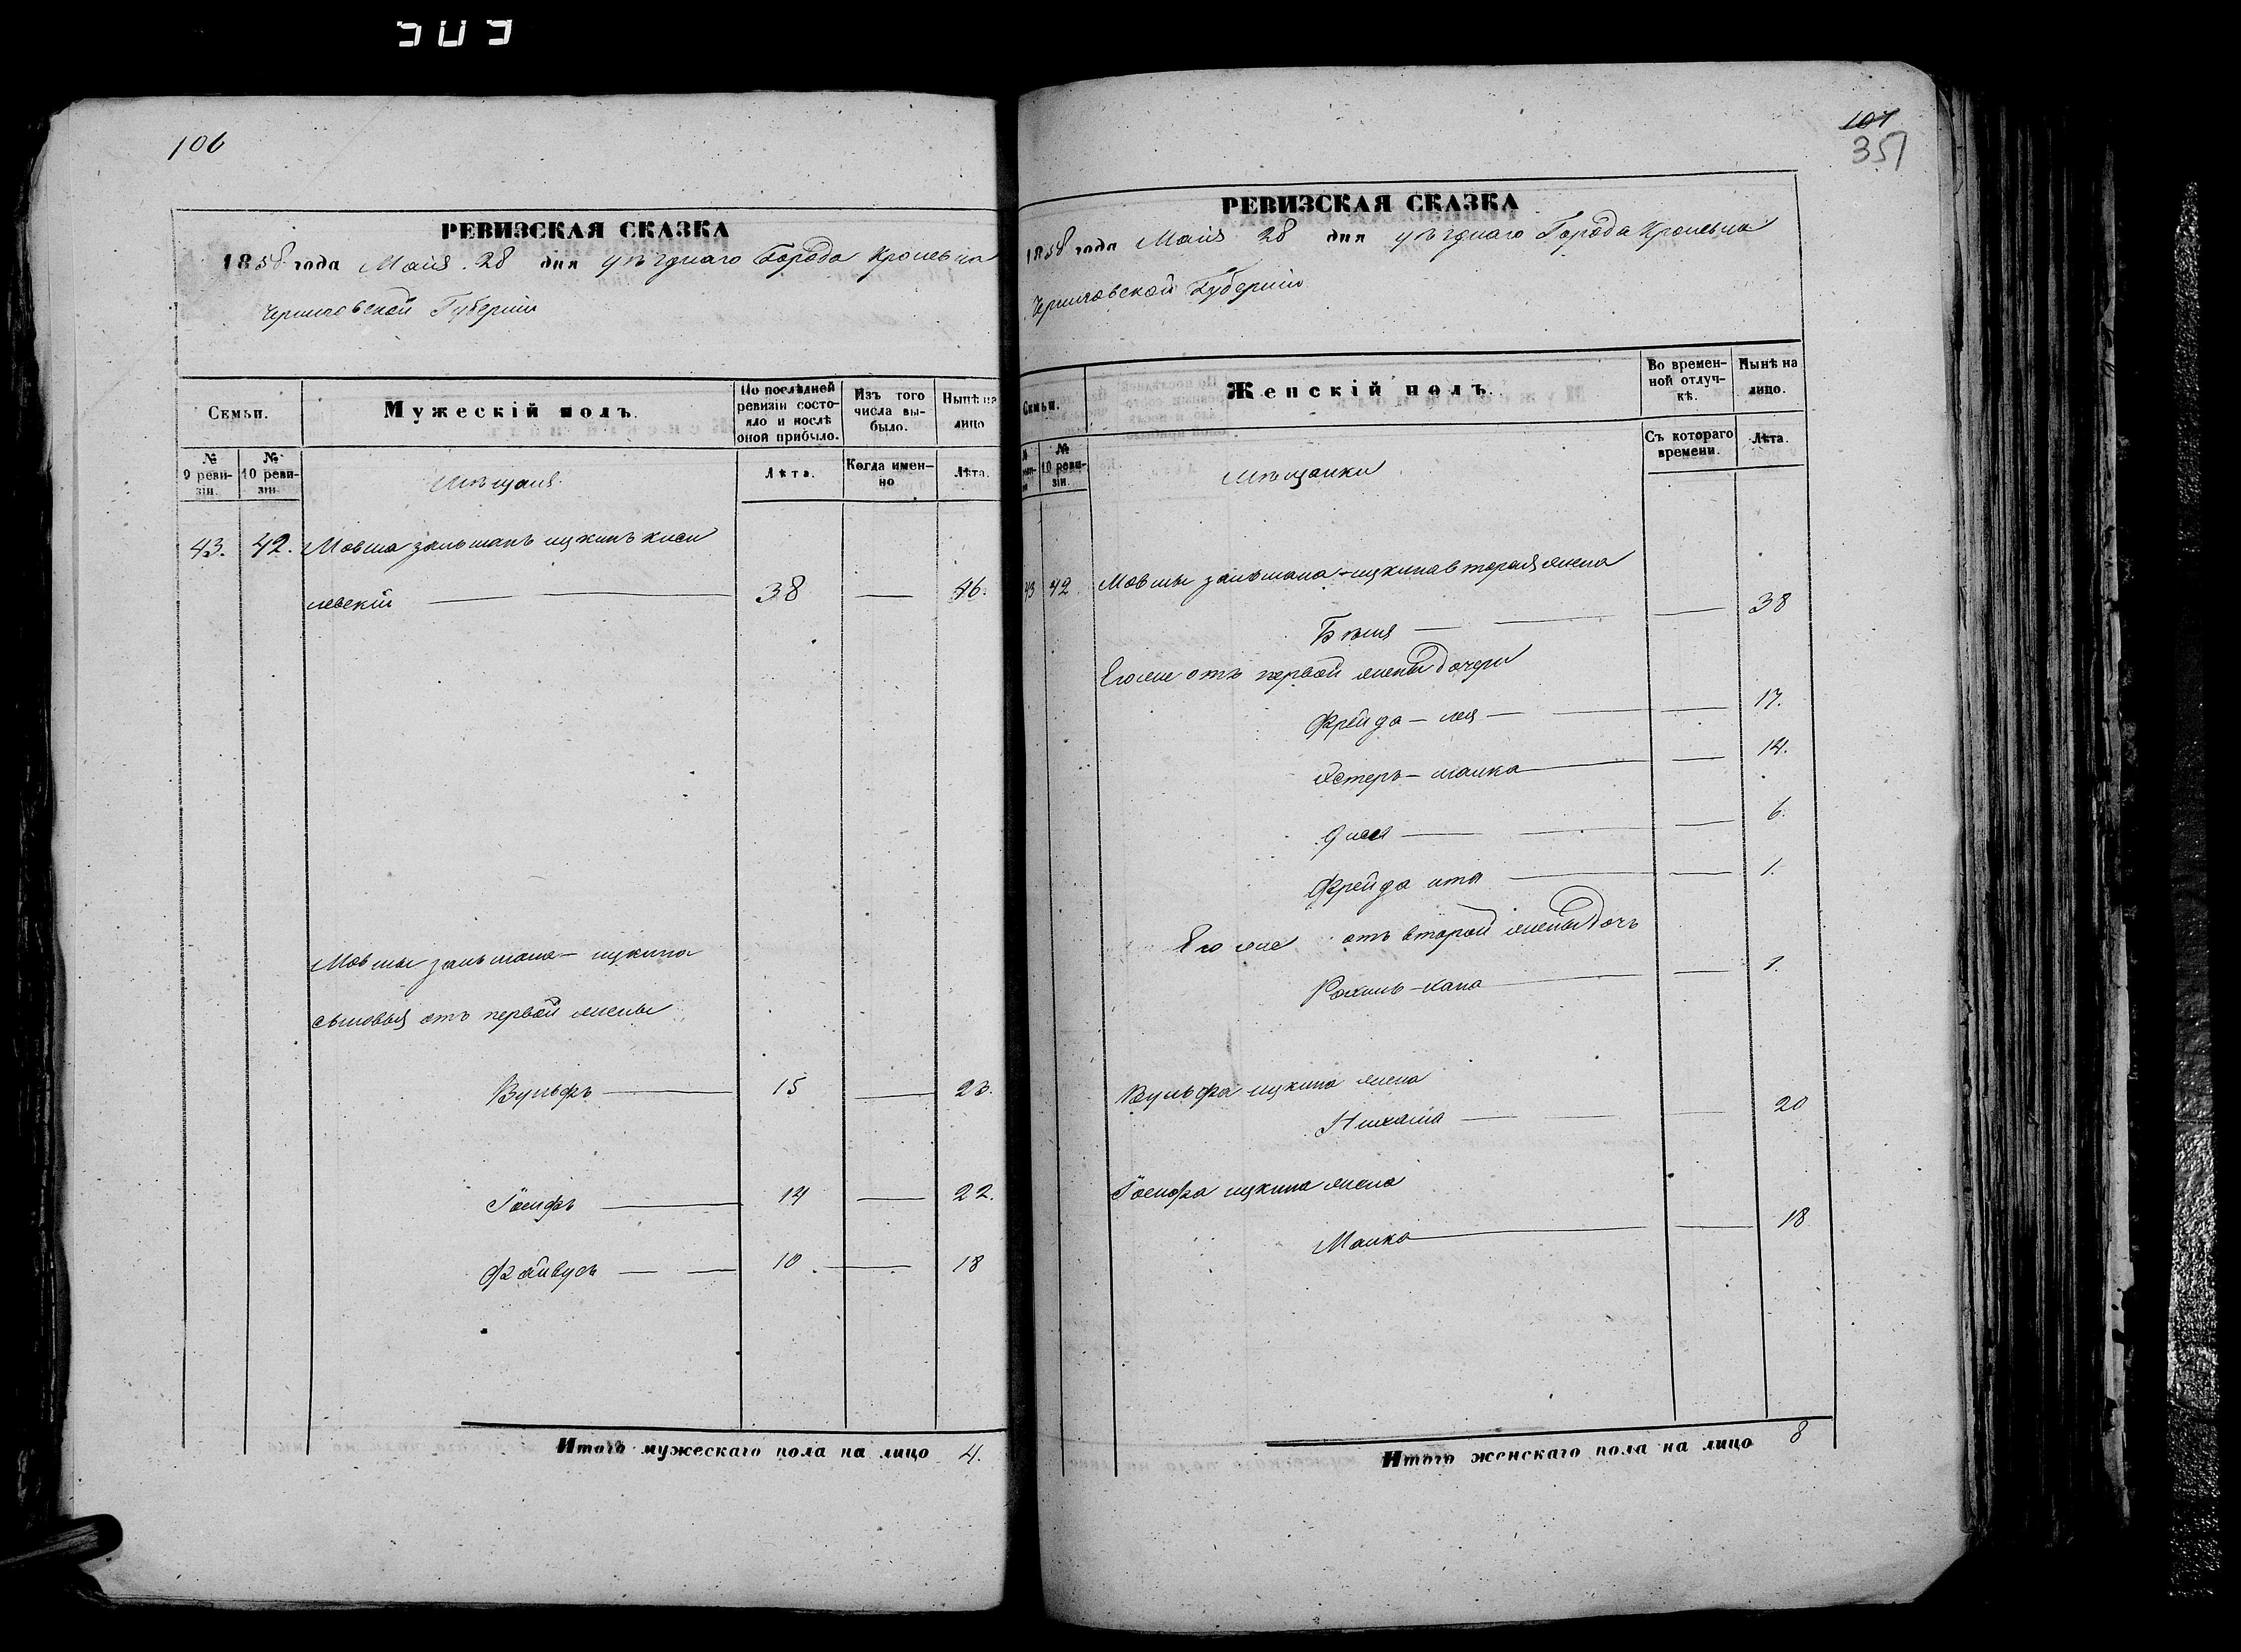 509
106
РЕВИЗСКАЯ СКАЗКА
1858 года Маія 28 дня уѣзднаго Города Кролевца
Черниговской Губерніи
Семьи.
Мужескій полъ.
По послѣдней ревизіи состояло и послѣ оной прибыло.
Изъ того числа выбыло.
Нынѣ на лицо
№ 9 ревизіи.
№ 10 ревизіи.
Мѣщане
Лѣта.
Когда именно
Лѣта.
43. 42. Мовша залманъ ицкинъ киси
левскій — — 38 — 46.
Мовши залмана – ицкина
сыновья отъ первой жены
Вульфъ — 15 — 23.
Іосифъ — 14 — 22.
Файвусъ — — 10 — 18
Итого мужескаго пола на лицо 4.
107
351
РЕВИЗСКАЯ СКАЗКА
1858 года Маія 28 дня уѣзднаго Города Кролевца
Черниговской Губерніи
Семьи.
Женскій полъ.
Во временной отлучкѣ.
Нынѣ на лицо.
№ 10 ревизіи.
Мѣщанки
Съ котораго времени.
Лѣта.
43 42 Мовши залмана – ицкина вторая жена
Бѣля — — — 38
Его же отъ первой жены дочери
Фрейда – лея — — — 17.
Естеръ – малка — — 14.
6.
Фрейда ита — — 1.
Его же отъ второй жены дочь
Рохиль – хана — — 1.
Вульфа ицкина жена
— — — 20
Іосифа ицкина жена
Малка — — 18
Итого женскаго пола на лицо 8